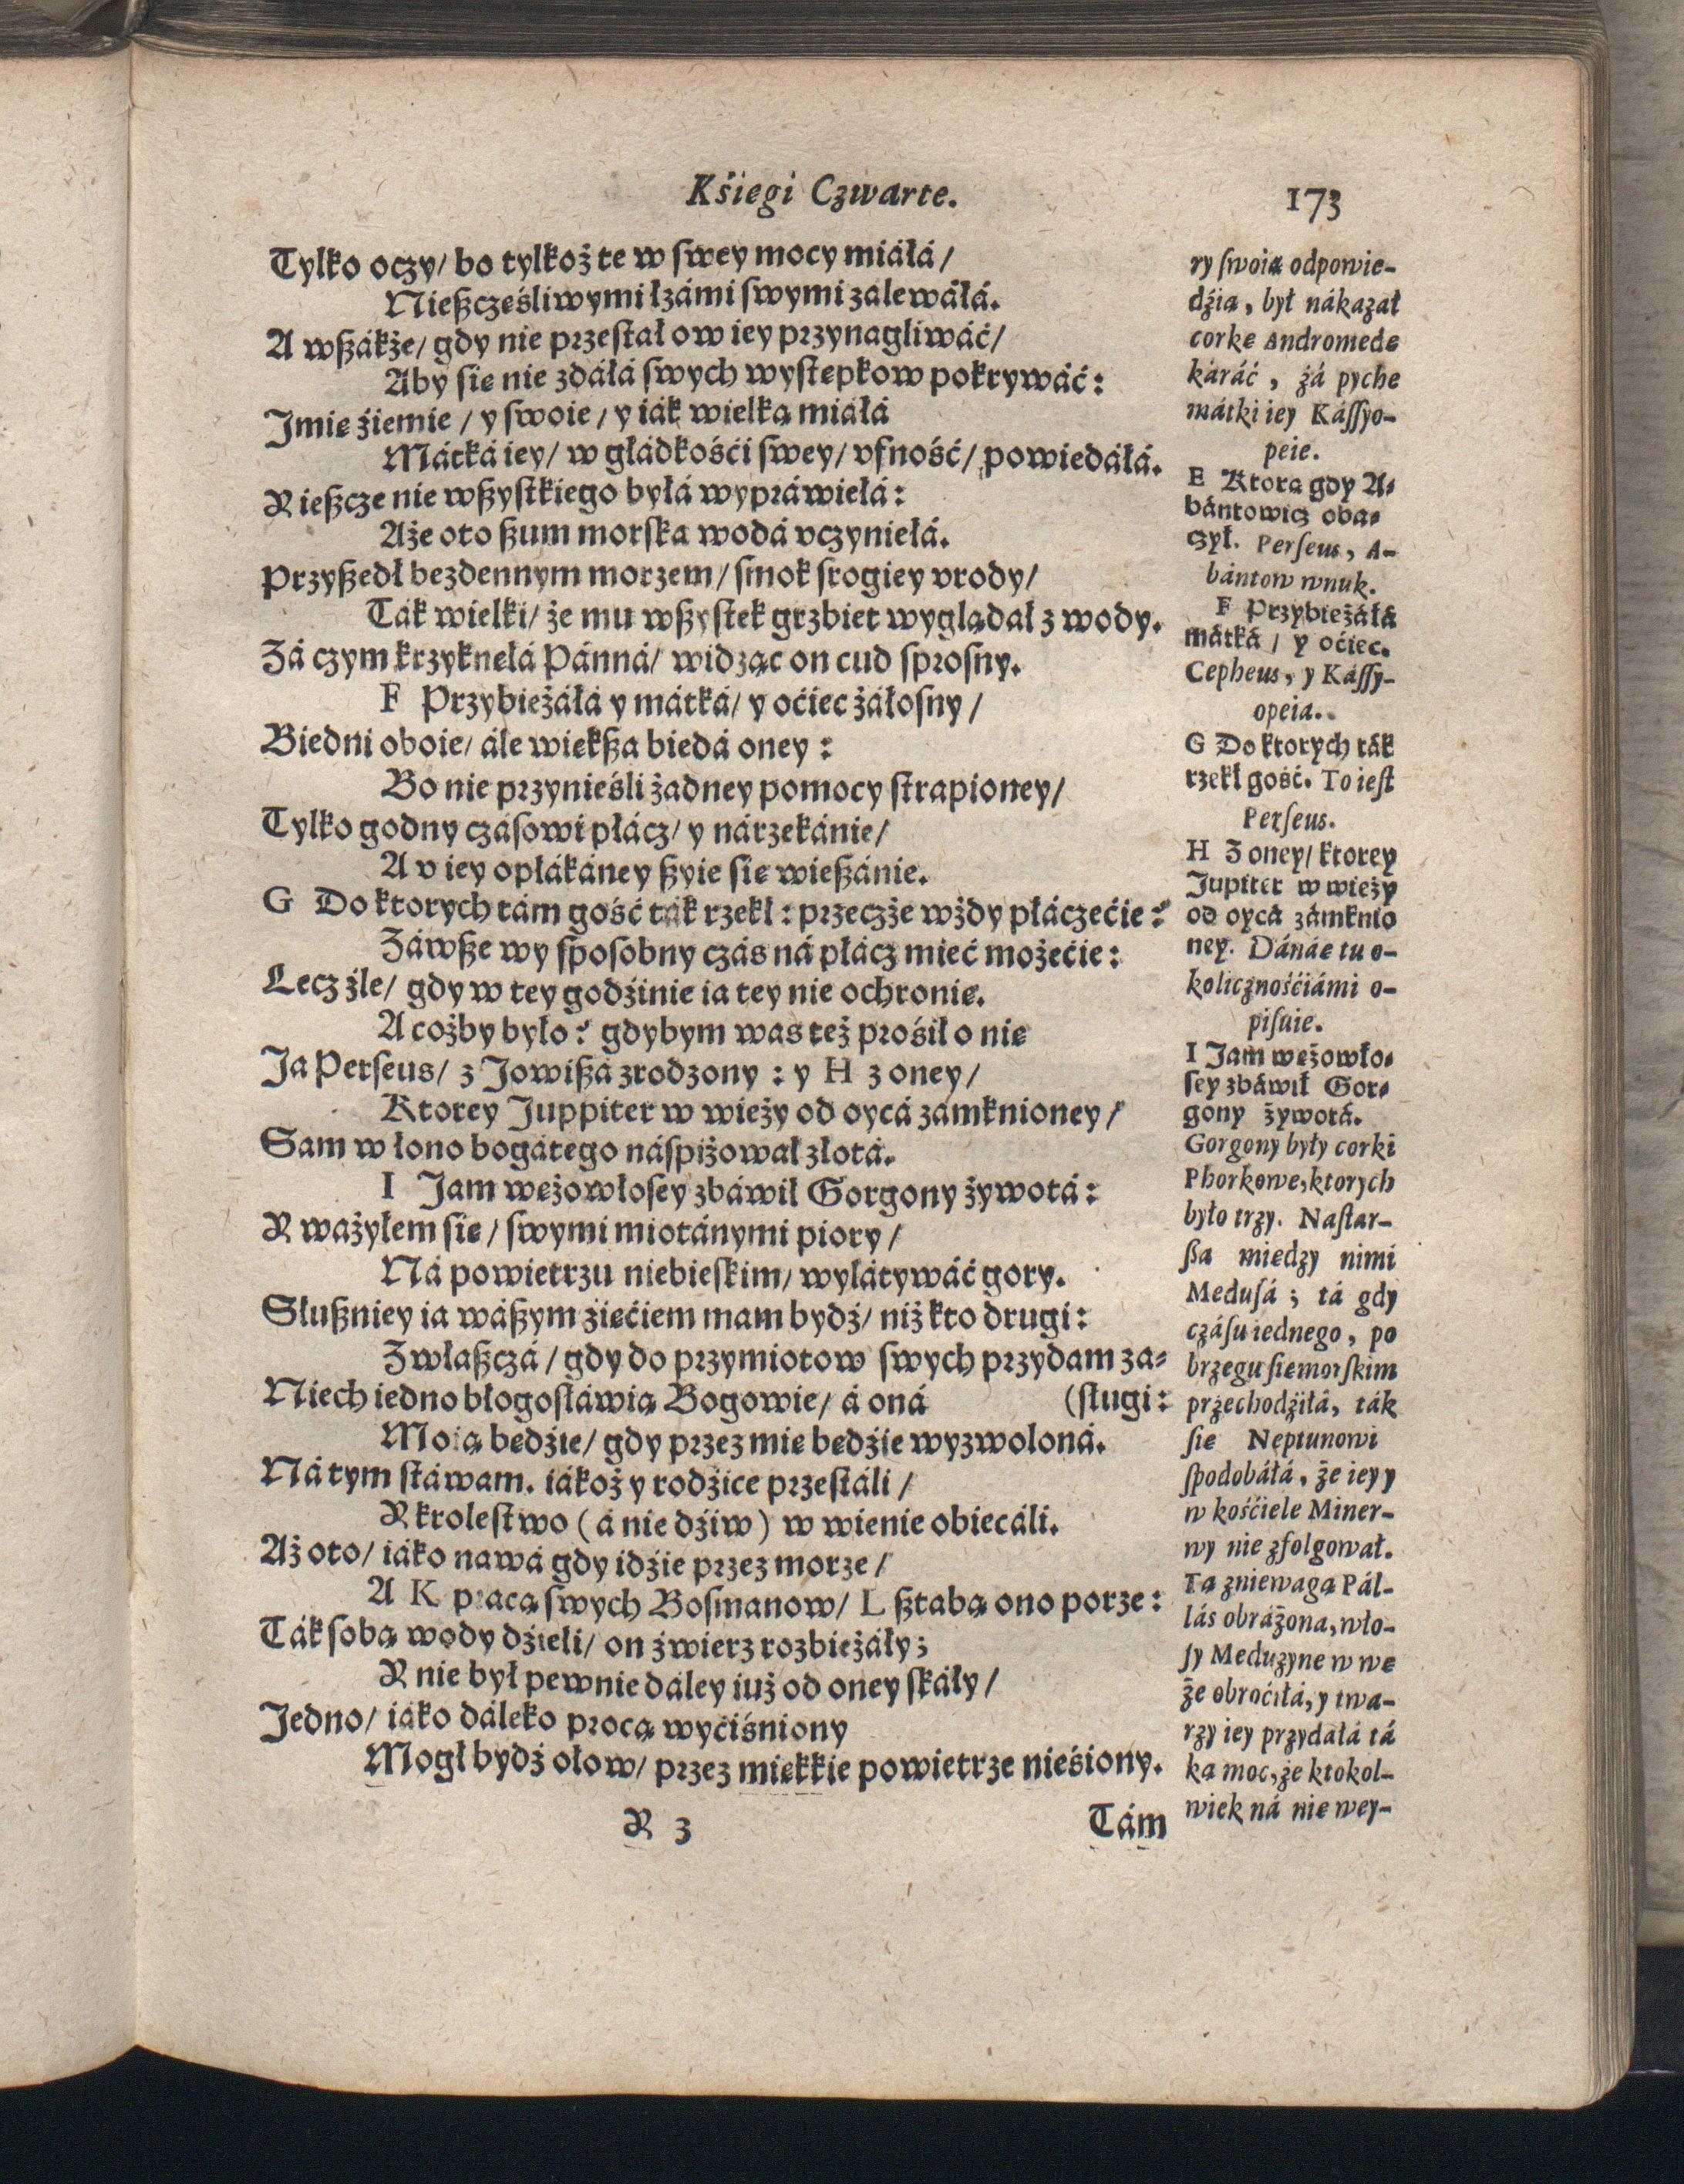 Kśiegi Czwarte.
173
Tylko oczy/ bo tylkoż te w ſwey mocy miáłá/
Nießczęśliwymi łzámi ſwymi zálewáłá.
A wßákże/ gdy nie przeſtał ow iey przynagliwáć/
Aby ſie nie zdáłá ſwych wyſtepkow pokrywáć:
Jmię źiemie/ y ſwoie/ y iák wielką miáłá
Mátká iey/ w głádkośći ſwey/ vfność/ powiedáłá.
Y ießcze nie wßyſtkiego byłá wypráwiełá:
Aże oto ßum morſka wodá vczyniełá.
Przyßedł bezdennym morzem/ ſmok ſrogiey vrody/
Ták wielki/ że mu wßyſtek grzbiet wyglądał z wody.
Zá czym krzyknęłá Pánná/ widząc on cud ſproſny.
F Przybieżáłá y mátká/ y oćiec żáłoſny/
Biedni oboie/ ále więkßa biedá oney:
Bo nie przynieśli żadney pomocy ſtrapioney/
Tylko godny czáſowi płácz/ y nárzekánie/
A v iey opłákáney ßyie ſie wießánie.
G Do ktorych tám gość ták rzekł: przeczże wżdy płáczećie?
Záwße wy ſpoſobny czás ná płácz mieć możećie:
Lecz źle/ gdy w tey godźinie ia tey nie ochronię.
A cożby było? gdybym was też prośił o nię
Ja Perſeus/ z Jowißá zrodzony: y H z oney/
Ktorey Juppiter w wieży od oycá zámknioney/
Sam w łono bogátego náſpiżował złotá.
I Jam wężowłoſey zbáwił Gorgony żywotá:
Y ważyłem ſię/ ſwymi miotánymi piory/
Ná powietrzu niebieſkim/ wylátywáć gory.
Słußniey ia wáßym źięćiem mam bydź/ niż kto drugi:
Zwłaßczá/ gdy do przymiotow ſwych przydam za-
Niech iedno błogoſłáwią Bogowie/ á oná (ſługi:
Moią będźie/ gdy przez mię będźie wyzwoloná.
Ná tym ſtáwam. iákoż y rodźice przeſtáli/
Y kroleſtwo (á nie dźiw) w wienie obiecáli.
Aż oto/ iáko nawá gdy idźie przez morze/
A K pracą ſwych Boſmanow/ L ßtabą ono porze:
Ták ſobą wody dźieli/ on źwierz rozbieżáły;
Y nie był pewnie dáley iuż od oney ſkáły/
Jedno/ iáko dáleko procą wyćiśniony
Mogł bydź ołow/ przez miękkie powietrze nieśiony.
Y 3
Tám
ry ſwoią odpowie-
dźią, był nákazał
corkę Andromedę
káráć, zá pychę
mátki iey Káſſyo-
peie.
E Ktorą gdy A-
bántowicz oba-
czył. Perſeus, A-
bántow wnuk.
F Przybieżáłá
mátká/ y oćiec.
Cepheus, y Káſſy-
opeia.
G Do ktorych ták
rzekł gość. To ieſt
Perſeus.
H Z oney/ ktorey
Jupiter w wieży
od oycá zámknio
ney. Dánáe tu o-
kolicznośćiámi o-
piſuie.
I Jam wężowło-
ſey zbáwił Gor-
gony żywotá.
Gorgony były corki
Phorkowe, ktorych
było trzy. Naſtar-
ßa miedzy nimi
Meduſá; tá gdy
czáſu iednego, po
brzegu ſie morſkim
przechodźiłá, ták
ſie Neptunowi
ſpodobáłá, że iey y
w kośćiele Miner-
wy nie zfolgował.
Tą zniewagą Pál-
lás obráżona, wło-
ſy Meduzyne w wę
że obroćiłá, y twa-
rzy iey przydáłá tá
ką moc, że ktokol-
wiek ná nię wey-